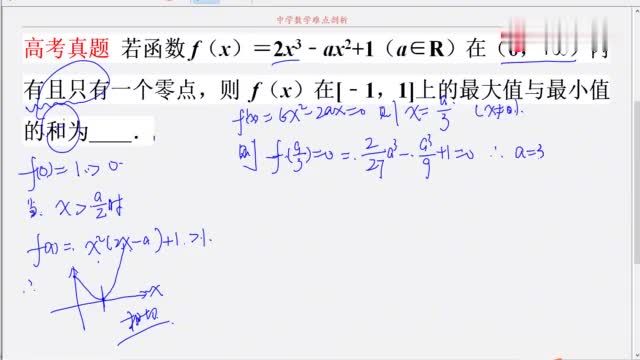 中学数学难点剖析
高考真题 若函数 f（x）＝2x³﹣ax²+1（a∈R）在（0，+∞）内
有且只有一个零点，则 f（x）在[﹣1，1]上的最大值与最小值
的和为____．
f'(x)=6x²-2ax=0 则 x=a/3 (x≠0).
则 f(a/3)=0= 2/27 a³- a³/9 +1=0 ∴ a=3
f(0)=1>0
当 x>a/2 时
f(x)=x²(2x-a)+1>1.
∴
x
相切